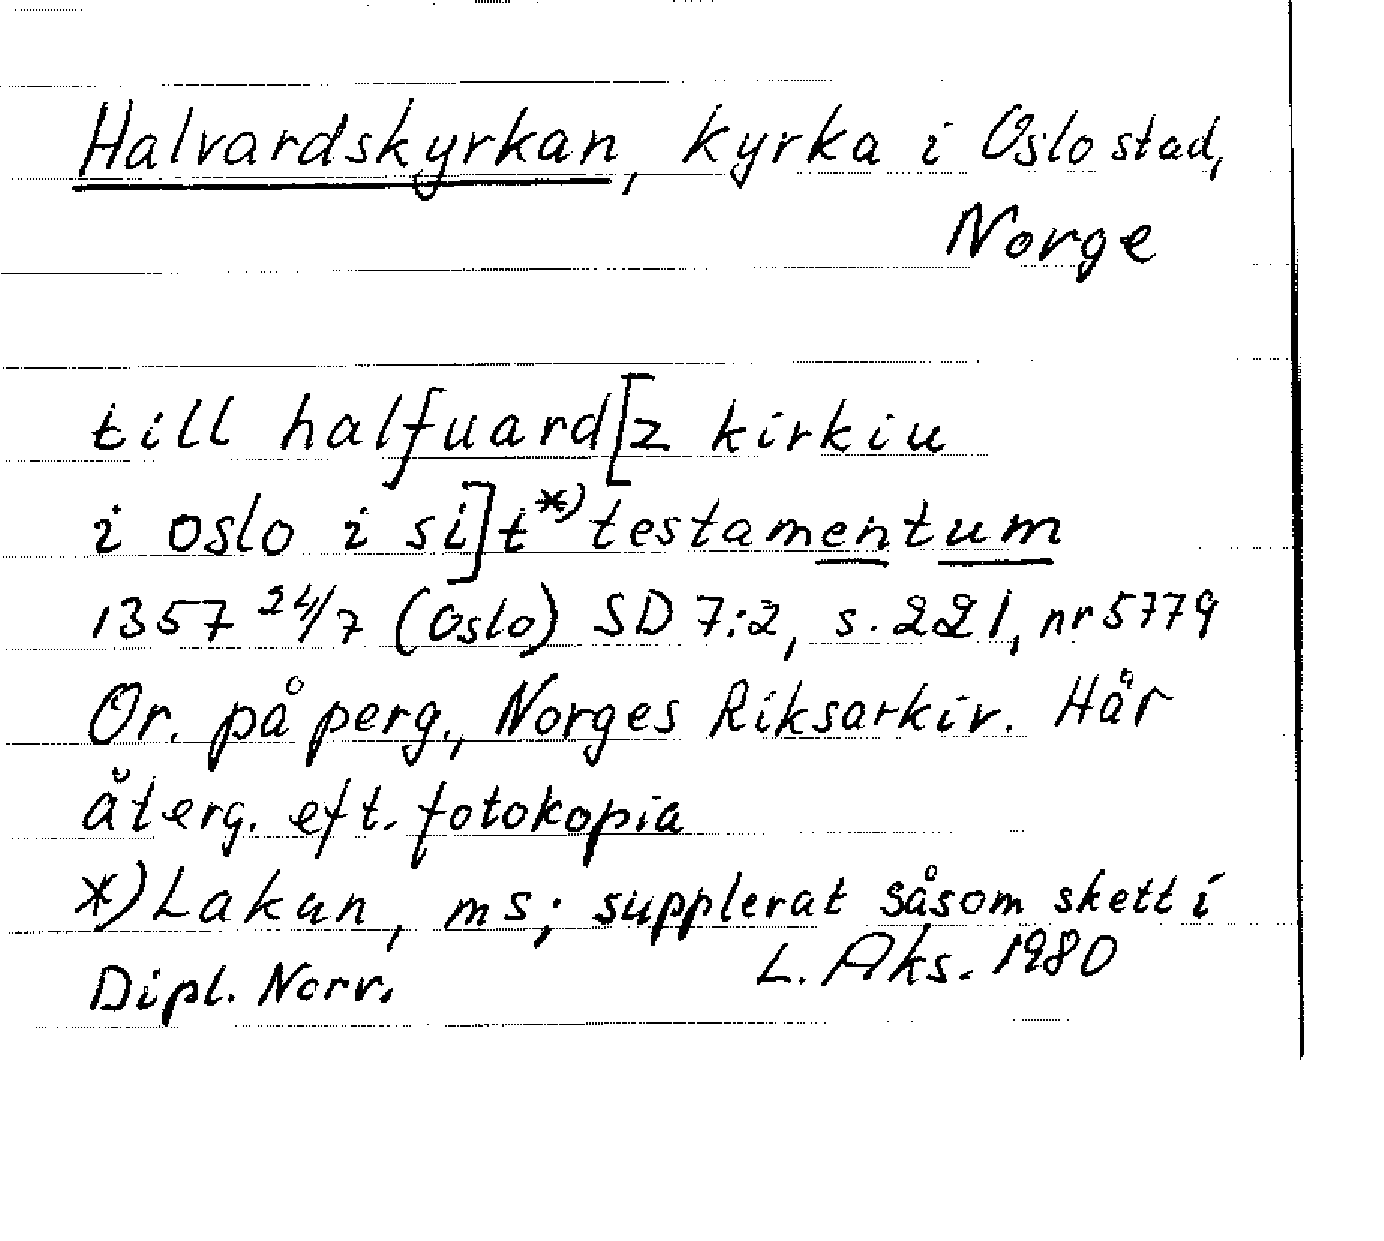 Halvardskyrkan, kyrka i Oslo stad,
Norge
till halfuard[z kirkiu
i oslo i si]t *) testamentum
1357 24/7 (Oslo) SD 7:2, s. 221, nr 5779
Or. på perg., Norges Riksarkiv. Här
återg. eft. fotokopia
*) Lakun, ms; supplerat såsom skett i
Dipl. Norv.
L. Aks. 1980